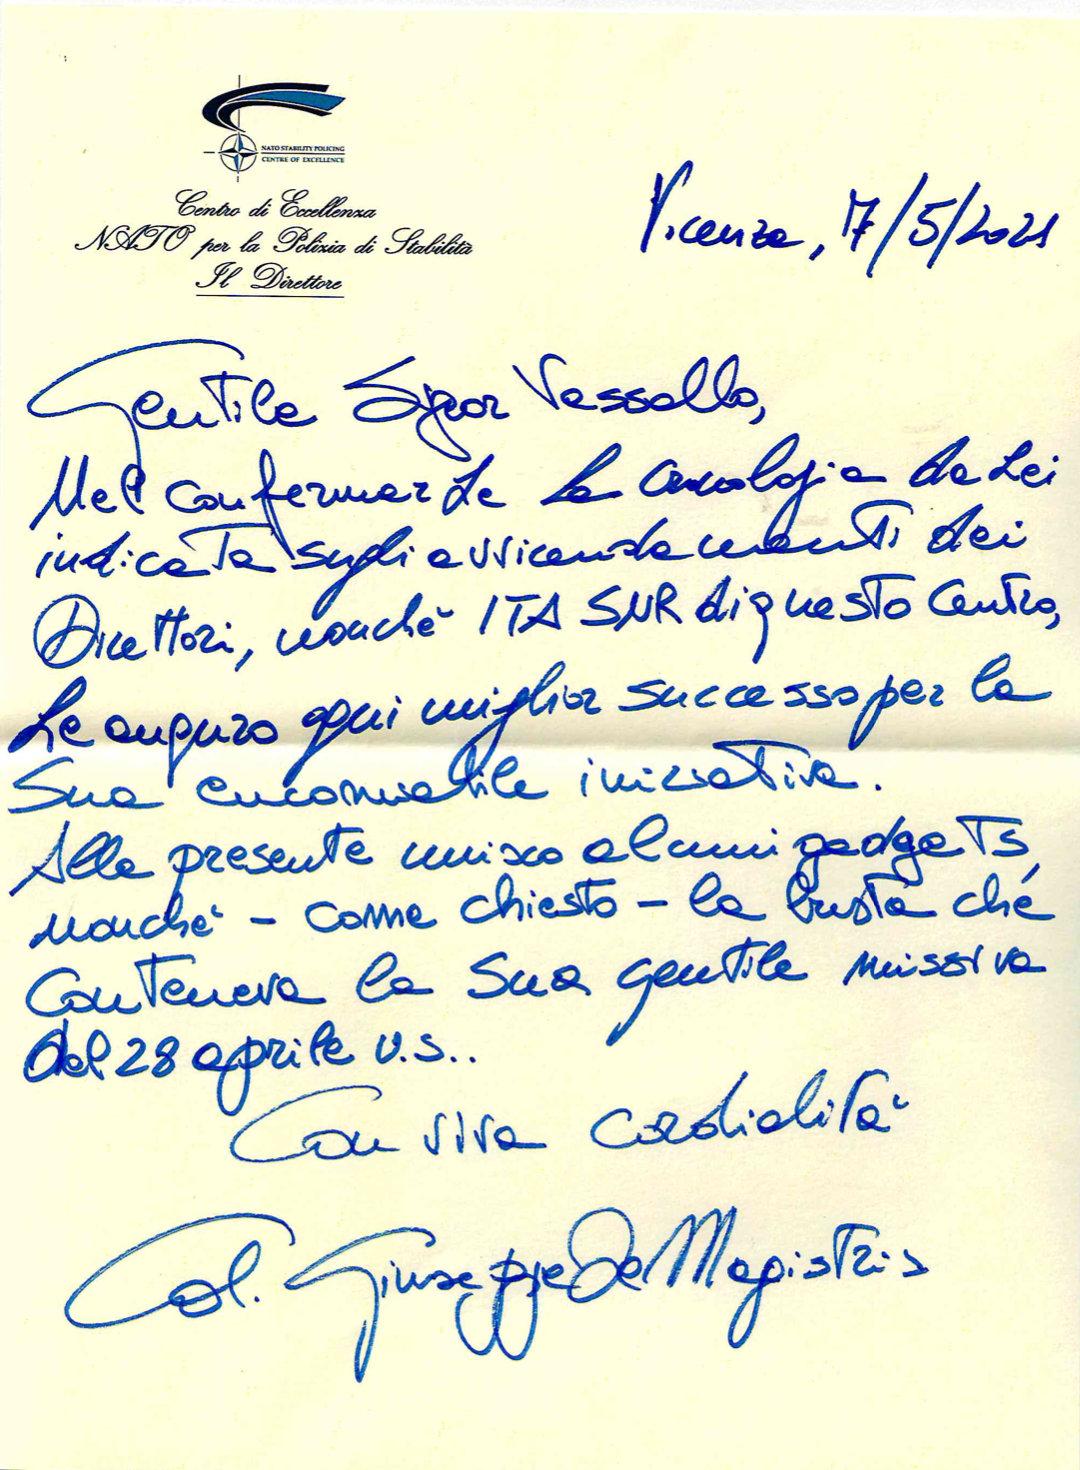 NATO STABILITY POLICING
CENTRE OF EXCELLENCE
Centro di Eccellenza
NATO per la Polizia di Stabilità
Il Direttore
Vicenza, 7/5/2021
Gentile Signor Vassallo,
Nel confermarLe la cronologia da Lei
indicata sugli avvicendamenti dei
Direttori, nonchè ITA SNR di questo Centro,
Le auguro ogni miglior successo per la
Sua encomiabile iniziativa.
Alla presente unisco alcuni gadgets,
nonchè - come chiesto - la busta che
conteneva la Sua gentile missiva
del 28 aprile u.s..
Con viva cordialità
Col. Giuseppe De Magistris